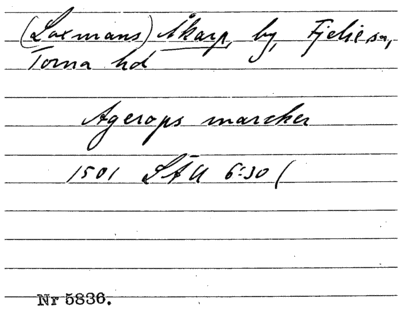 (Laxmans) Åkarp, by, Fjelie sn,
Torna hd
Agerops marcker
1501 LÄU 6:30 (
Nr 5836.